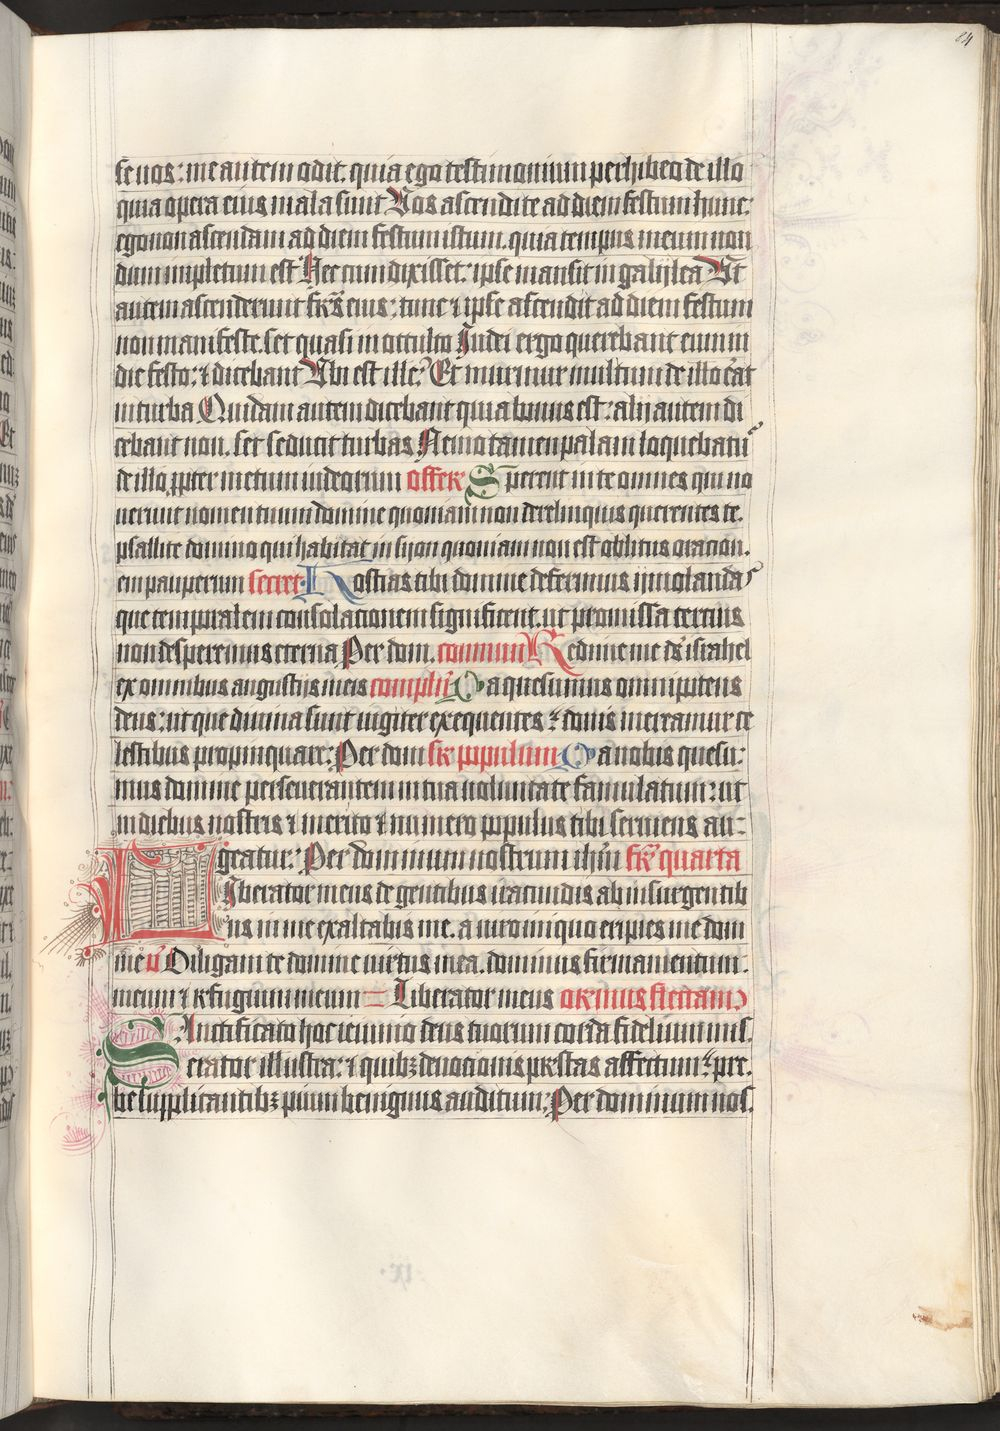 se uos : me autem odit. quia ego testimonium perhibeo de illo
quia opera eius mala sunt Vos ascendite ad diem festum hunc:
ego non ascendam ad diem festum istum. quia tempus meum non
dum impletum est Hec cum dixisset. ipse mansit in galylea Vt
autem ascenderunt frẽs eius. tunc ⁊ ipse ascendit ad diem festum
non manifeste. set quasi in occulto Iudei ergo querebant eum in
die festo. ⁊ dicebant Vbi est ille? Et murmur multum de illo eãt
in turba Quidam autem dicebant quia bonus est : alij autem di
cebant non. set seducit turbas Nemo tamen palam loquebatũ
de illo ꝓpter metum iudeorum offerẽ Sperent in te omnes qui no
uerunt nomen tuum domine quoniam non derelinquis querentes te.
psallite domino qui habitat in syon quoniam non est oblitus oracion.
em pauperum secret. Hostias tibi domine deferimus ymolandas
que temporalem consolacionem significent. ut promissa cercius
non desperemus eterna Per dom. commun Redime me ds̃ israhel
ex omnibus angustijs meis complñ Da quesumus omnipotens
deus : ut que diuina sunt iugiter exequentes ⁊ donis mereamur ce
lestibus propinquare: Per dom sr̃ populum Da nobis quesu:
mus domine perseuerantem in tua uoluntate famulatum : ut
in diebus nostris ⁊ merito ⁊ numero populus tibi seruiens au-
geatur: Per dominum nostrum ihm̃ fr̃ quarta
Liberator meus de gentibus iracundis ab insurgentib
us in me exaltabis me. a uiro iniquo eripies me dom
ine ṽ Diligam te domine uirtus mea. dominus firmamentum.
meum ⁊ refugium meum = Liberator meus oremus flectam⁹
Sanctificato hoc ieiunio deus tuorum corda fidelium mis.
erator illustra: ⁊ quibꝫ deuocionis prestas affectum: pre.
be supplicantibꝫ pium benignus auditum: Per dominum nos.